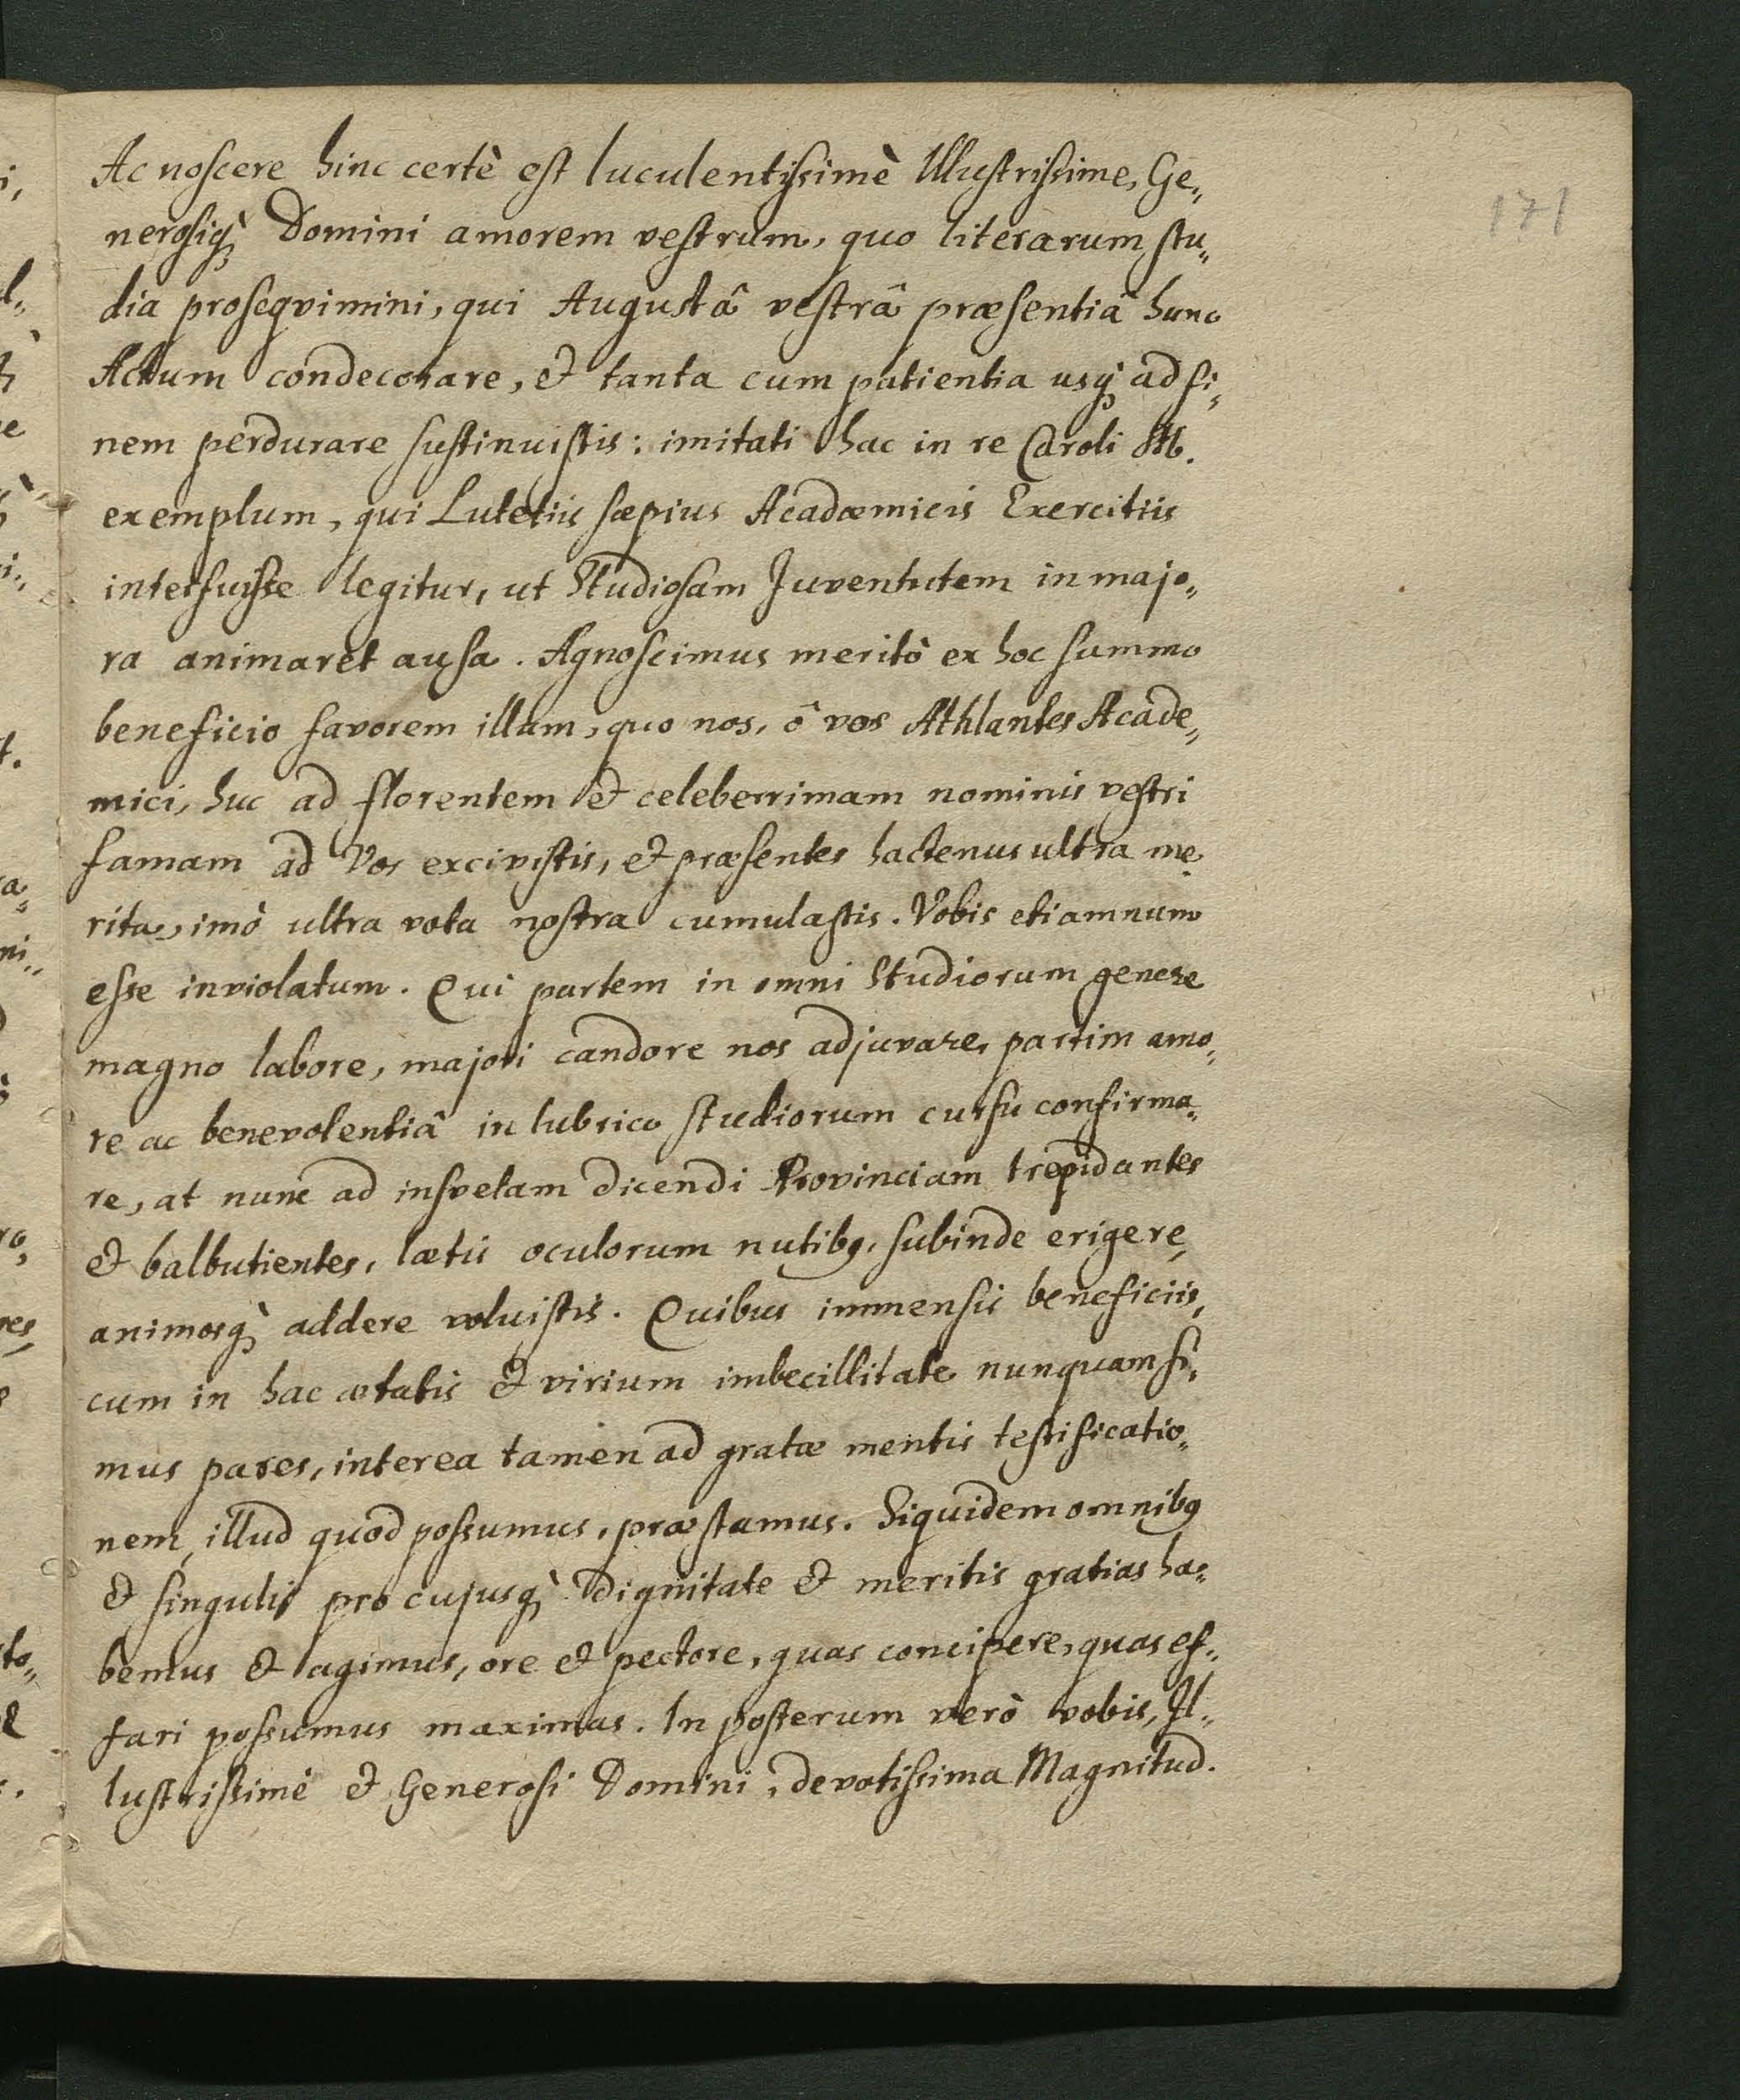 171
Ac noscere hinc certè est luculentissimè Illustrissime, Ge„
nerosiq́; Domini amorem vestrum, quo literarum stu„
dia proseqvimini, qui Augustâ vestrâ præsentiâ hunc
Actum condecorare, & tanta cum patientia usq; ad fi„
nem perdurare sustinuistis: imitati hac in re Caroli M.
exemplum, qui Lutetiis sæpius Acadæmicis Exercitiis
interfuisse legitur, ut Studiosam Juventutem in majo„
ra animaret ausa. Agnoscimus meritò ex hoc summo
beneficio favorem illum, quo nos, ô vos Athlantes Acade„
mici, huc ad florentem & celeberrimam nominis vestri
famam ad Vos excivistis, & præsentes hactenus ultra me„
rita, imò ultra vota nostra cumulastis. Vobis etiamnum
esse inviolatum. Qui partem in omni Studiorum genere
magno labore, majori candore nos adjuvare, partim amo„
re ac benevolentiâ in lubrico studiorum cursu confirma„
re, at nunc ad insvetam dicendi Provinciam trepidantes
& balbutientes, lætis oculorum nutibq, subinde erigere,
animosq́; addere voluistis. Quibus immensis beneficiis,
cum in hac ætatis & virium imbecillitate nunquam si„
mus pares, interea tamen ad gratæ mentis testificatio„
nem, illud quod possumus, præstamus. Siquidem omnibq
& singulis pro cujusq́; dignitate & meritis gratias ha„
bemus & agimus, ore & pectore, quas concipere, quas ef„
fari possumus maximas. In posterum verò vobis, Il„
lustrissimè & Generosi Domini, devotissima Magnitud.